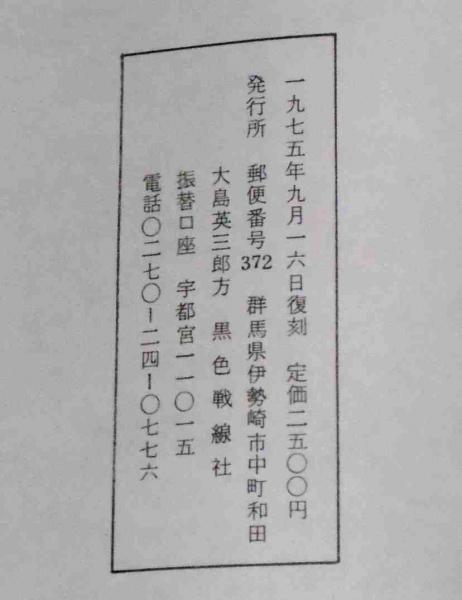 一九七五年九月一六日復刻　定価二五〇〇円
発行所　郵便番号372　群馬県伊勢崎市中町和田
大島英三郎方　黒色戦線社
振替口座　宇都宮一一〇一五
電話〇二七〇ー二四ー〇七七六